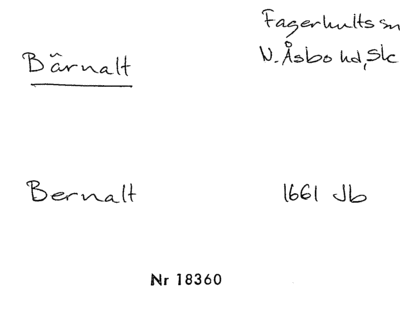 Fagerhults sn
Bärnalt
N. Åsbo hd, Sk
Bernalt 1661 Jb
Nr 18360